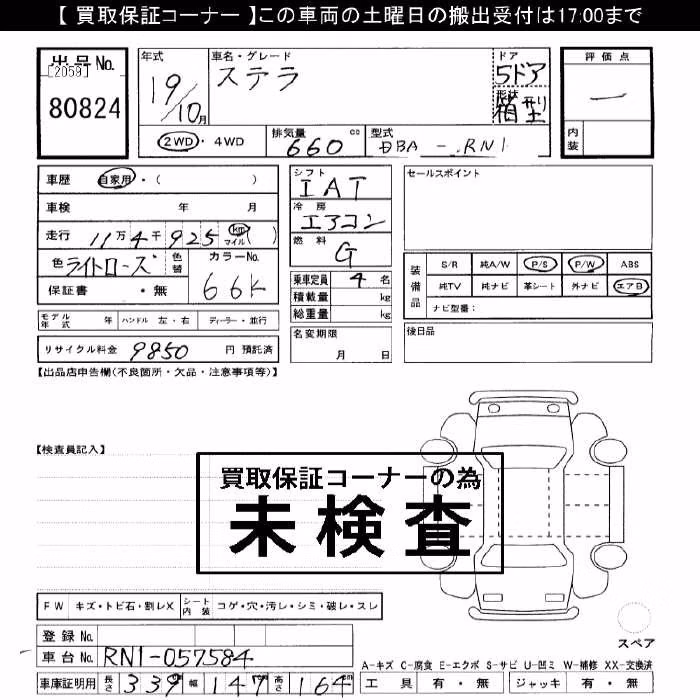 【 買取保証コーナー 】この車両の土曜日の搬出受付は17:00まで
出品No. [2059] 80824
年式 19/10月
車名・グレード ステラ
ドア 5ドア
形状 箱型
評価点 —
内装
2WD・4WD
排気量 660 cc
型式 DBA-RN1
車歴 自家用・( )
車検 年 月
走行 11万4千925 km マイル( )
色 ライトローズ 色替 カラーNo. 66K
保証書 ・無
モデル年式 年 ハンドル 左・右 ディーラー・並行
リサイクル料金 9850 円 預託済
シフト IAT
冷房 エアコン
燃料 G
乗車定員 4 名
積載量 kg
総重量 kg
名変期限 月 日
セールスポイント
装備品 S/R 純A/W P/S P/W ABS
純TV 純ナビ 革シート 外ナビ エアB
ナビ型番:
後日品
【出品店申告欄(不良箇所・欠品・注意事項等)】
【検査員記入】
買取保証コーナーの為
未検査
FW キズ・トビ石・割レX シート内装 コゲ・穴・汚レ・シミ・破レ・スレ
スペア
登録No.
車台No. RN1-057584
A-キズ C-腐食 E-エクボ S-サビ U-凹ミ W-補修 XX-交換済
車庫証明用 長さ 339 幅 147 高さ 164 cm
工具 有・無 ジャッキ 有・無